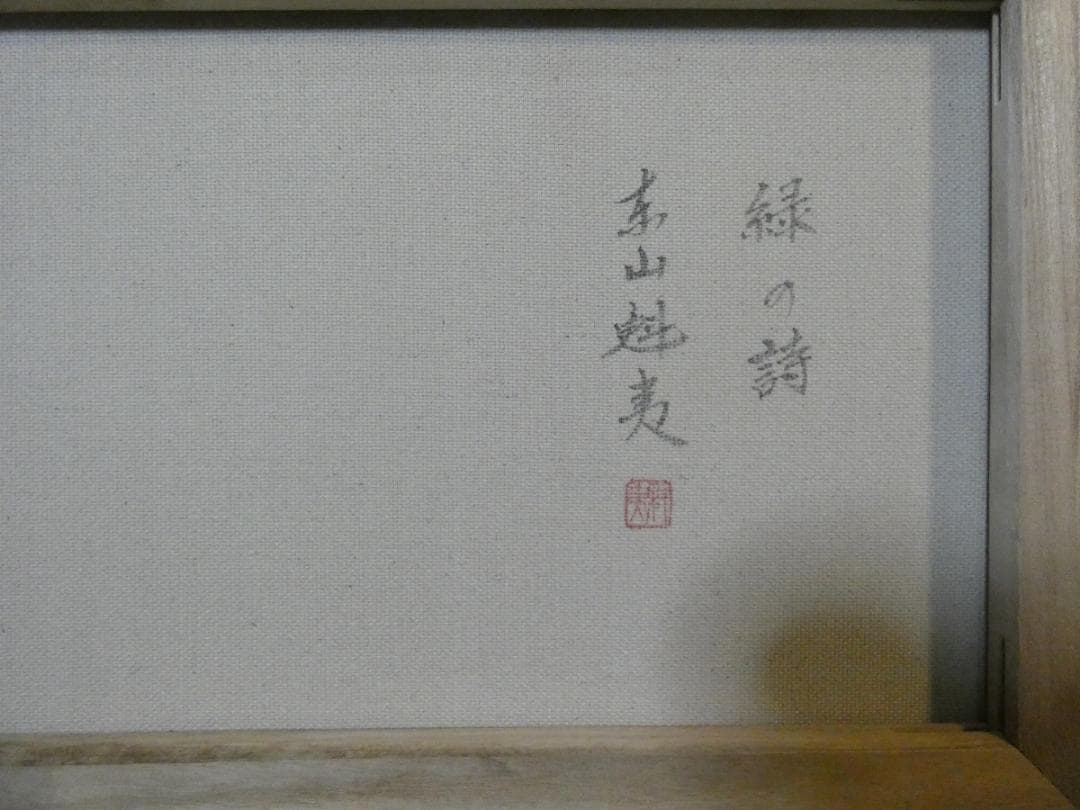 緑の詩
東山魁夷